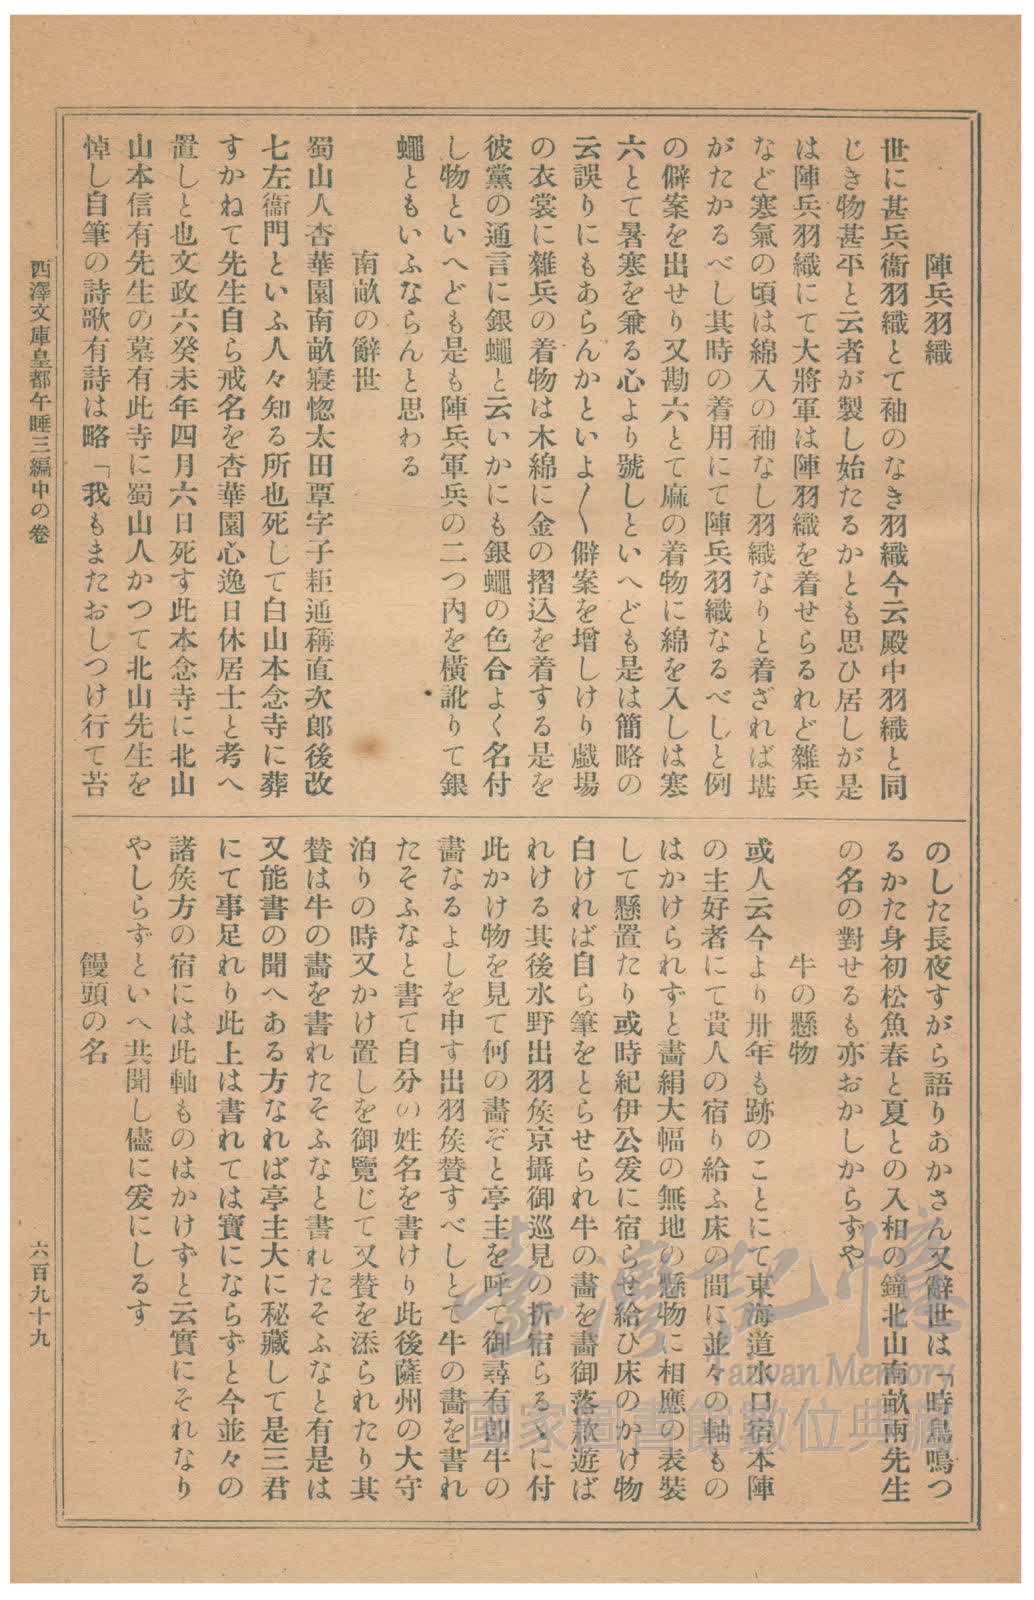 陣兵羽織
世に甚兵衞羽織とて袖のなき羽織今云殿中羽織と同
じき物甚平と云者が製し始たるかとも思ひ居しが是
は陣兵羽織にて大將軍は陣羽織を着せらるれど雜兵
など寒氣の頃は綿入の袖なし羽織なりと着ざれば堪
がたかるべし其時の着用にて陣兵羽織なるべしと例
の僻案を出せり又勘六とて麻の着物に綿を入しは寒
六とて暑寒を兼る心より號しといへども是は簡略の
云誤りにもあらんかといよ〱僻案を增しけり戲場
の衣裳に雜兵の着物は木綿に金の摺込を着する是を
彼黨の通言に銀蠅と云いかにも銀蠅の色合よく名付
し物といへども是も陣兵軍兵の二つ內を橫訛りて銀
蠅ともいふならんと思わる
南畝の辭世
蜀山人杏華園南畝寢惚太田覃字子耟通稱直次郎後改
七左衞門といふ人々知る所也死して白山本念寺に葬
すかねて先生自ら戒名を杏華園心逸日休居士と考へ
置しと也文政六癸未年四月六日死す此本念寺に北山
山本信有先生の墓有此寺に蜀山人かつて北山先生を
悼し自筆の詩歌有詩は略「我もまたおしつけ行て苔
のした長夜すがら語りあかさん又辭世は「時鳥鳴つ
るかた身初松魚春と夏との入相の鐘北山南畝兩先生
の名の對せるも亦おかしからずや
牛の懸物
或人云今より卅年も跡のことにて東海道水口宿本陣
の主好者にて貴人の宿り給ふ床の間に並々の軸もの
はかけられずと畵絹大幅の無地の懸物に相應の表裝
して懸置たり或時紀伊公爰に宿らせ給ひ床のかけ物
白ければ自ら筆をとらせられ牛の畵を畵御落款遊ば
れける其後水野出羽矦京攝御巡見の折宿らるゝに付
此かけ物を見て何の畵ぞと亭主を呼て御尋有卽牛の
畵なるよしを申す出羽矦賛すべしとて牛の畵を書れ
たそふなと書て自分の姓名を書けり此後薩州の大守
泊りの時又かけ置しを御覽じて又賛を添られたり其
賛は牛の畵を書れたそふなと書れたそふなと有是は
又能書の聞へある方なれば亭主大に秘藏して是三君
にて事足れり此上は書れては寶にならずと今並々の
諸矦方の宿には此軸ものはかけずと云實にそれなり
やしらずといへ共聞し儘に爰にしるす
饅頭の名
西澤文庫皇都午睡三編中の卷
六百九十九
臺灣記憶
Taiwan Memory
國家圖書館數位典藏